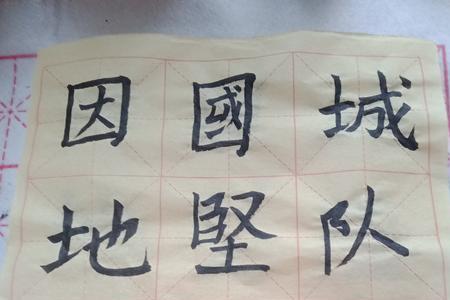 因國城
地堅队